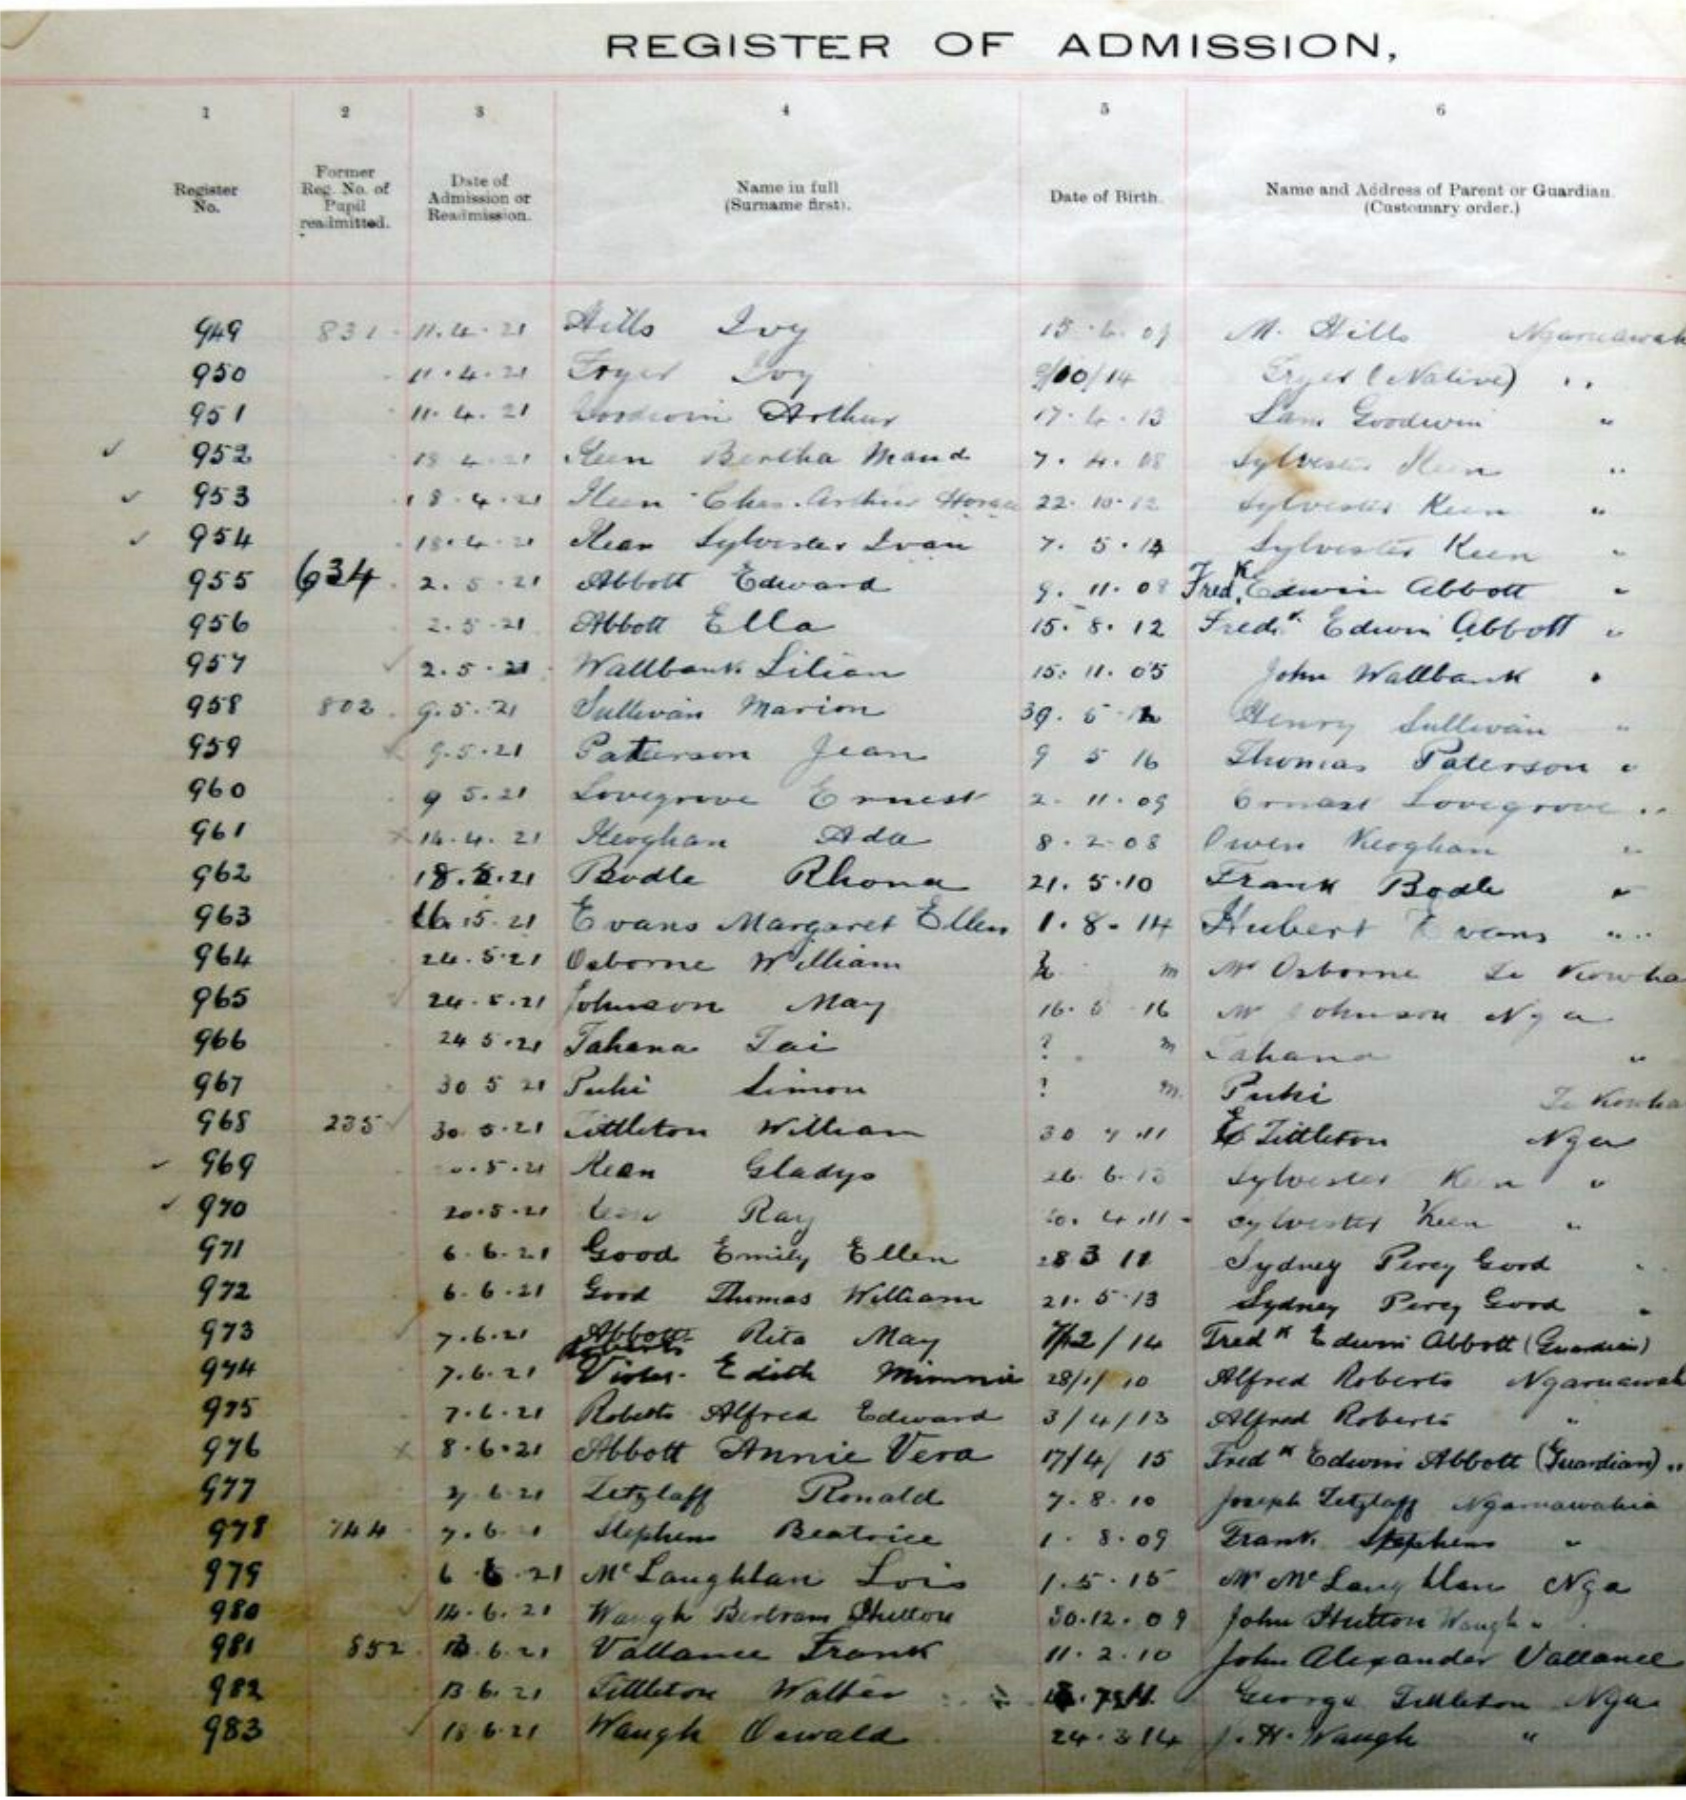 REGISTER OF ADMISSION,
1 2 3 4 5 6
Register No. Former Reg. No. of Pupil readmitted. Date of Admission or Readmission. Name in full (Surname first). Date of Birth. Name and Address of Parent or Guardian. (Customary order.)
949 831 11.4.21 Hills Ivy 15.6.09 M. Hills Ngaruawah
950 11.4.21 Fryer Ivy 9/10/14 Fryer (Native) "
951 11.4.21 Goodwin Arthur 17.4.13 Sam Goodwin "
952 18.4.21 Keen Bertha Maud 7.4.08 Sylvester Keen "
953 18.4.21 Keen Chas. Arthur Horace 22.10.12 Sylvester Keen "
954 18.4.21 Keen Sylvester Ivan 7.5.14 Sylvester Keen "
955 634 2.5.21 Abbott Edward 9.11.08 Fredk Edwin Abbott "
956 2.5.21 Abbott Ella 15.8.12 Fredk Edwin Abbott "
957 2.5.21 Wallbank Lilian 15.11.05 John Wallbank "
958 802 9.5.21 Sullivan Marion Henry Sullivan "
959 9.5.21 Paterson Jean 9 5 16 Thomas Paterson "
960 9 5.21 Lovegrove Ernest 2.11.09 Ernest Lovegrove "
961 14.4.21 Keoghan Ada 8.2.08 Owen Keoghan "
962 18.5.21 Bodle Rhona 21.5.10 Frank Bodle "
963 16.5.21 Evans Margaret Ellen 1.8.14 Hubert Evans "
964 24.5.21 Osborne William m Mr Osborne Te Kowha
965 24.5.21 Johnson May 16.6.16 Mr Johnson Nga
966 24 5.21 Tahana Tai ? m Tahana "
967 30 5 21 Puhi Simon ? m. Puhi Te Kowha
968 235 30.5.21 Tittleton William 30 7.11 E Tittleton Nga
969 5.21 Kean Gladys 26.6.13 Sylvester Keen "
970 20.5.21 Keen Ray 4.11 Sylvester Keen "
971 6.6.21 Good Emily Ellen 28 3 11 Sydney Percy Good "
972 6.6.21 Good Thomas William 21.5.13 Sydney Percy Good "
973 7.6.21 Abbott Rita May 7/12/14 Fredk Edwin Abbott (Guardian)
974 7.6.21 Roberts Edith Minnie 28/1/10 Alfred Roberts Ngaruawah
975 7.6.21 Roberts Alfred Edward 3/4/13 Alfred Roberts "
976 8.6.21 Abbott Annie Vera 17/4/15 Fredk Edwin Abbott (Guardian) "
977 6.21 Zetzlaff Ronald 7.8.10 Joseph Zetzlaff Ngaruawahia
978 744 7.6.21 Stephens Beatrice 1.8.09 Frank Stephens "
979 6.6.21 McLaughlan Lois 1.5.15 Mr McLaughlan Nga
980 14.6.21 Waugh Bertram Hutton 30.12.09 John Hutton Waugh "
981 852 13.6.21 Vallance Frank 11.2.10 John Alexander Vallance
982 13 6.21 Tittleton Walter George Tittleton Nga
983 18 6.21 Waugh Oswald 24.3.14 J. H. Waugh "